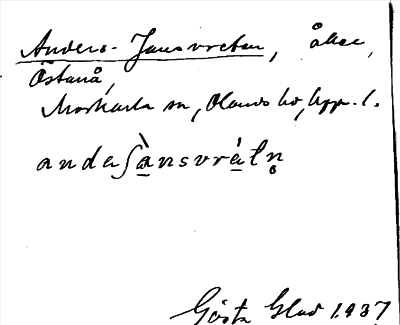 Anders-Jansvreten, åker,
Östanå,
Morkarla sn, Olands hd, Uppl.
andaʃànsvrétn̥
Gösta Glad 1937